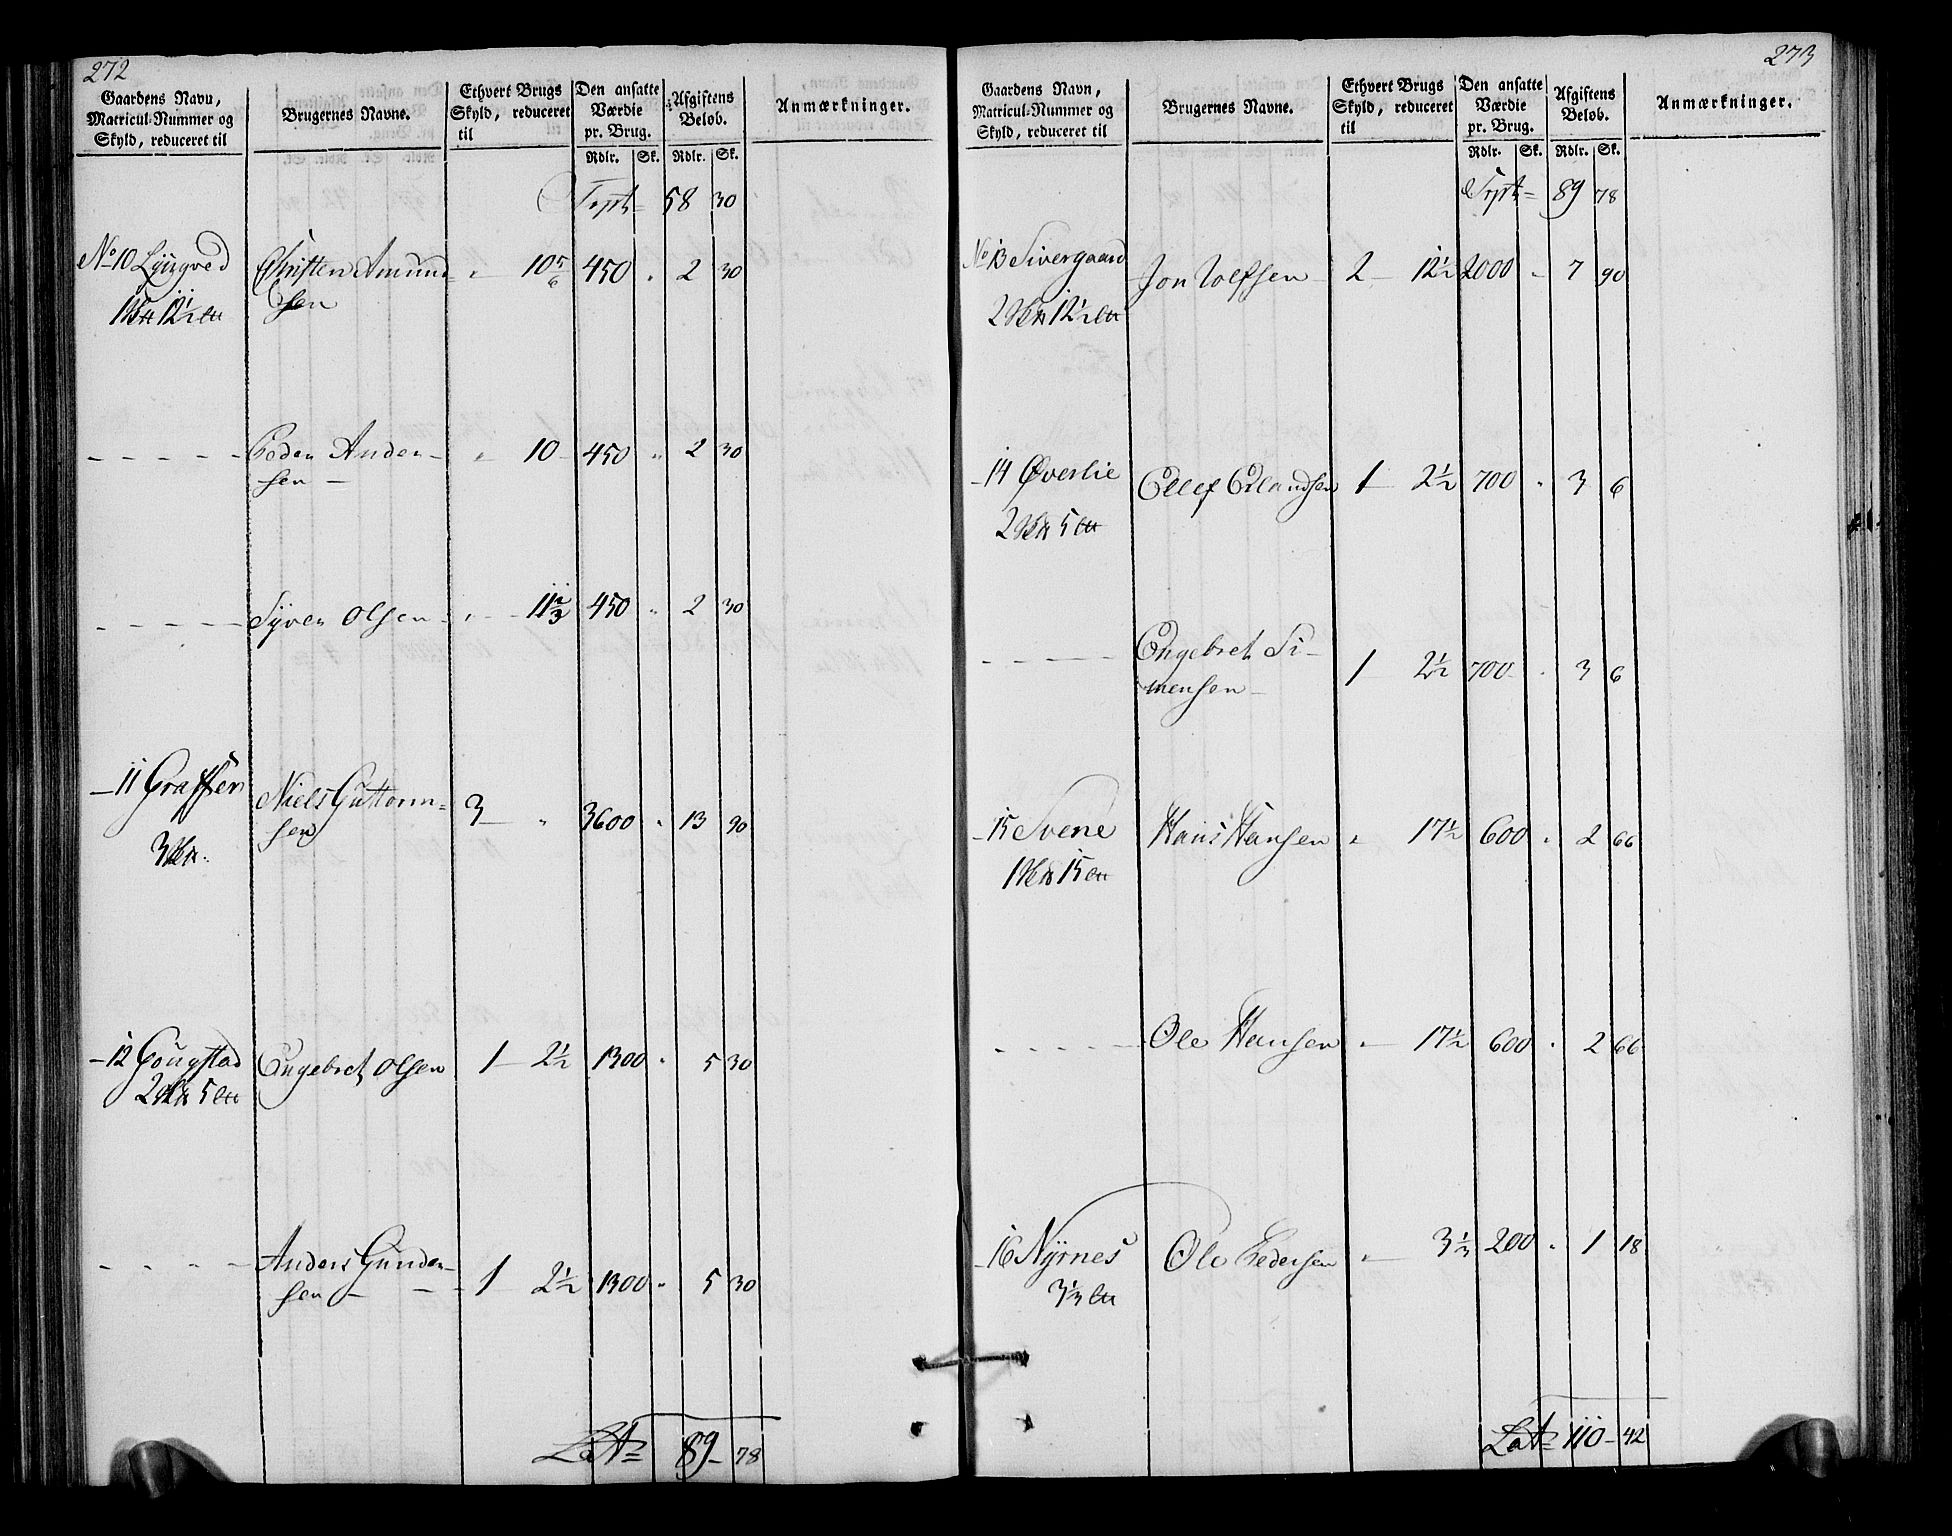 272
Gaardens Navn, Matricul-Nummer og Skyld, reduceret til | Brugernes Navne. | Ethvert Brugs Skyld, reduceret til | Den ansatte Værdie pr. Brug. | Afgiftens Beløb. | Anmærkninger.
Rdlr. | Sk. | Rdlr. | Sk.
Trpt= 58 30
No 10 Lÿngved Christen Amund= " 10 5/6 450 " 2 30
12 1/2 sen
- - - - - Peder Ander- " 10 - 450 " 2 30
sen -
- - - - - Syver Olsen - " - 11 2/3 450 " 2 30
- 11 Graffer Niels Guttorm= 3 - " 3600 " 13 90
3 sen
- 12 Gougstad Engebret Olsen 1 - 2 1/2 1300 " 5 30
2 5
- - - - Anders Gunder- 1 - 2 1/2 1300 " 5 30
sen - -
Lat= 89 - 78
273
Gaardens Navn, Matricul-Nummer og Skyld, reduceret til | Brugernes Navne. | Ethvert Brugs Skyld, reduceret til | Den ansatte Værdie pr. Brug. | Afgiftens Beløb. | Anmærkninger.
Rdlr. | Sk. | Rdlr. | Sk.
Trpt= 89 78
No 13 Sivergaard Jon Rolfsen - 2 12 1/2 2000 - 7 90
2 12 1/2
- 14 Øverlie Ellef Erlandsen 1 - 2 1/2 700 " 3 6
2 5
- - - - - Engebret Si- 1 - 2 1/2 700 - " 3 6
mensen -
- 15 Svene Hans Hansen " 17 1/2 600 " 2 66
1 15
- - - - - Ole Hansen " 17 1/2 600 " 2 66
- 16 Nÿrnes Ole Pedersen " 3 1/3 200 " 1 18
3 1/3
Lat= 110 - 42